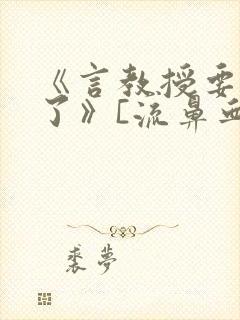 《言教授要
了》[流鼻血
裘梦